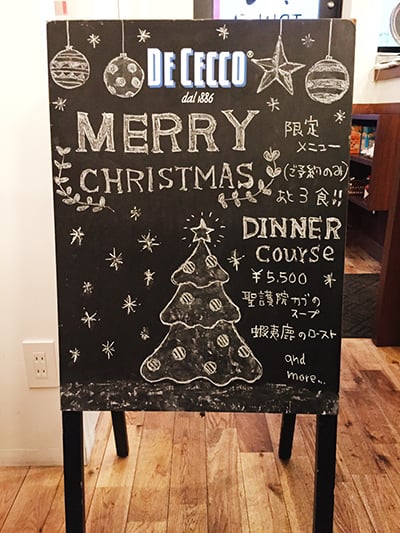 DE CECCO®
dal 1886
MERRY
CHRISTMAS
限定
メニュー
(ご予約のみ)
あと3食!!
DINNER
Course
¥5,500
聖護院カブの
スープ
蝦夷鹿のロースト
and
more...